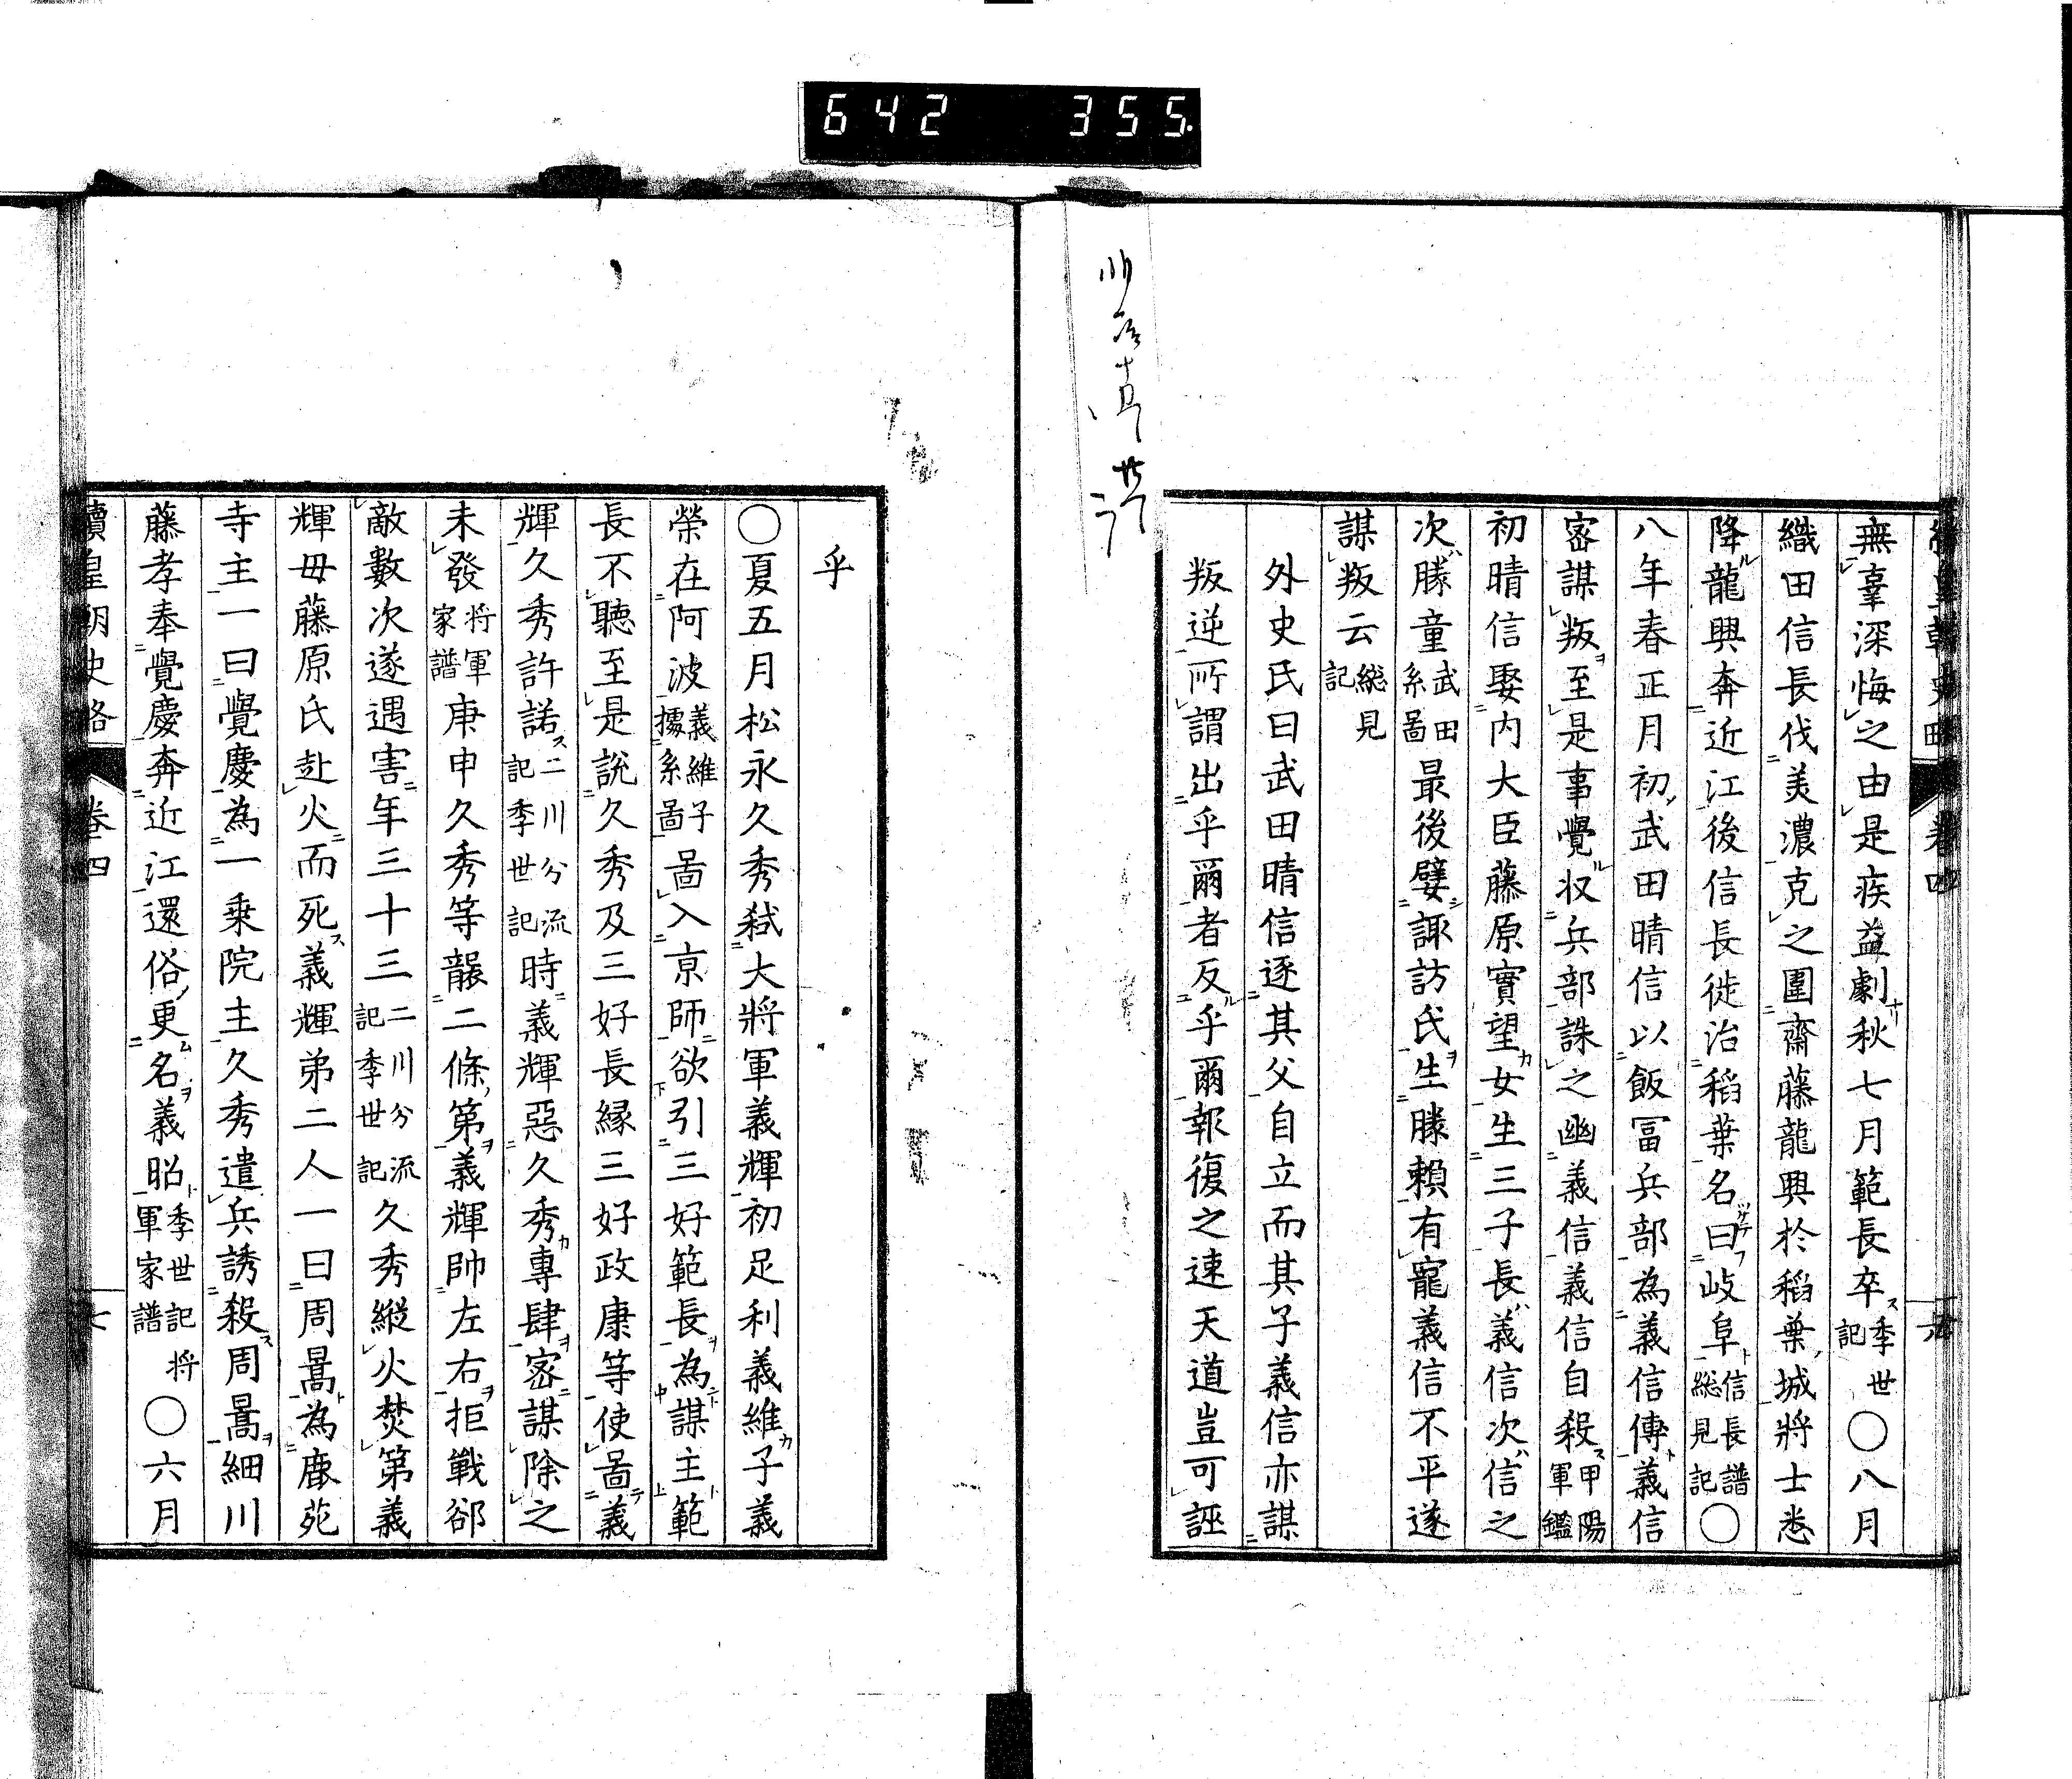 642 355.
無辜深悔之由是疾益劇秋七月範長卒季世記〇八月
織田信長伐美濃克之圍齋藤龍興於稻葉城將士悉
降龍興奔近江後信長徙治稻葉名曰岐阜信長譜総見記〇
八年春正月初武田晴信以飯冨兵部為義信傳義信
密謀叛至是事覺収兵部誅之幽義信義信自殺甲陽軍鑑
初晴信娶内大臣藤原實望女生三子長義信次信之
次勝童武田系啚最後嬖諏訪氏生勝頼有寵義信不平遂
謀叛云総見記
外史氏曰武田晴信逐其父自立而其子義信亦謀
叛逆所謂出乎爾者反乎爾報復之速天道豈可誣
乎
〇夏五月松永久秀弑大將軍義輝初足利義維子義
榮在阿波義維子據系啚啚入京師欲引三好範長為謀主範
長不聽至是說久秀及三好長縁三好政康等使啚義
輝久秀許諾二川分流記季世記時義輝惡久秀專肆密謀除之
未發将軍家譜庚申久秀等襲二條第義輝帥左右拒戰郤
敵數次遂遇害年三十三二川分流記季世記久秀縦火焚第義
輝毋藤原氏赴火而死義輝弟二人一曰周暠為鹿苑
寺主一曰覺慶為一乗院主久秀遣兵誘殺周暠細川
藤孝奉覺慶奔近江還俗更名義昭季世記将軍家譜〇六月
續皇朝史略 卷四 七